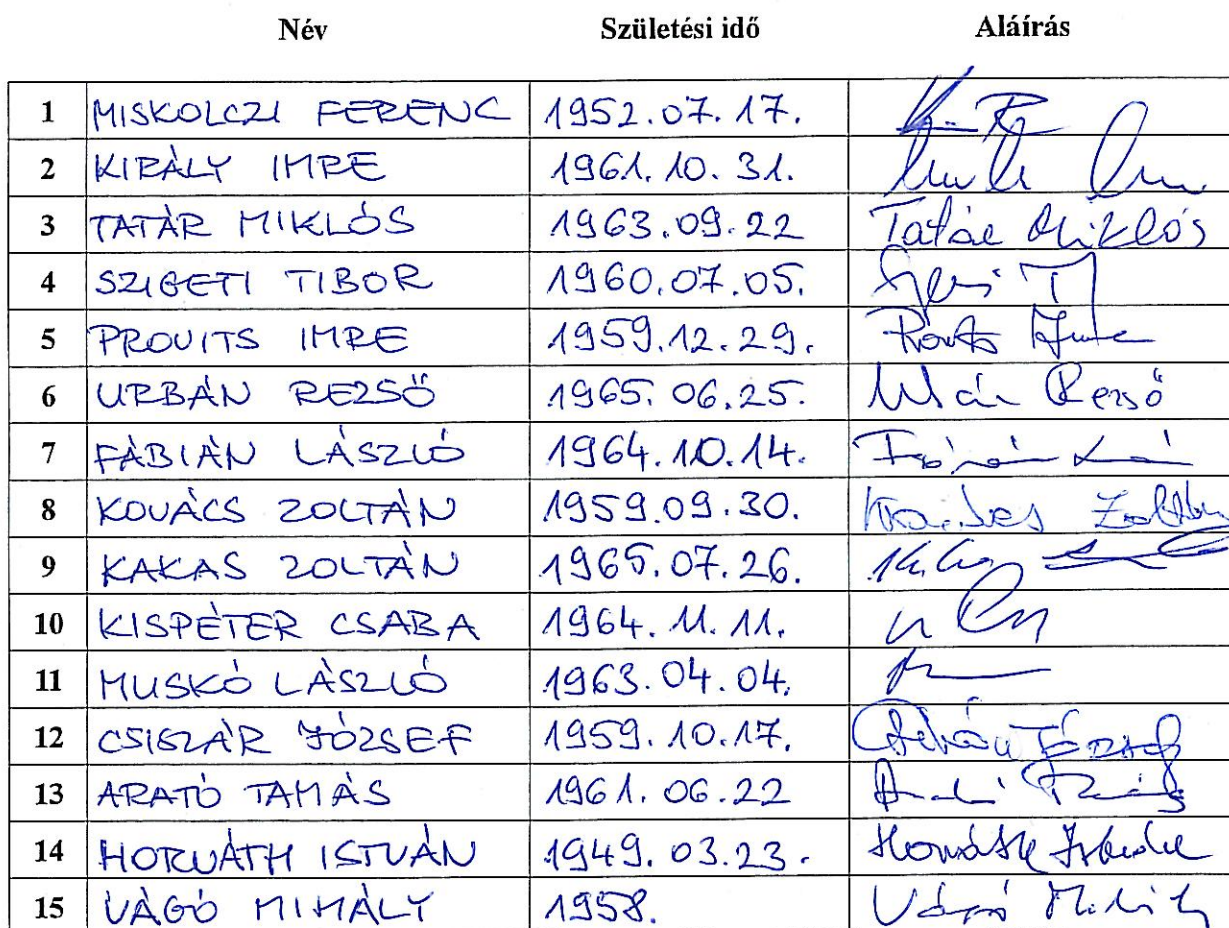 Név Születési idő Aláírás
1 MISKOLCZI FERENC 1952.07.17.
2 KIRÁLY IMRE 1961.10.31.
3 TATÁR MIKLÓS 1963.09.22 Tatár Miklós
4 SZIGETI TIBOR 1960.07.05.
5 PROVITS IMRE 1959.12.29.
6 URBÁN REZSŐ 1965.06.25. Rezső
7 FÁBIÁN LÁSZLÓ 1964.10.14.
8 KOVÁCS ZOLTÁN 1959.09.30. Kovács Zoltán
9 KAKAS ZOLTÁN 1965.07.26.
10 KISPÉTER CSABA 1964.11.11.
11 MUSKÓ LÁSZLÓ 1963.04.04.
12 CSISZÁR JÓZSEF 1959.10.17. József
13 ARATÓ TAMÁS 1961.06.22
14 HORVÁTH ISTVÁN 1949.03.23. Horváth István
15 VÁGÓ MIHÁLY 1958. Vágó Mihály